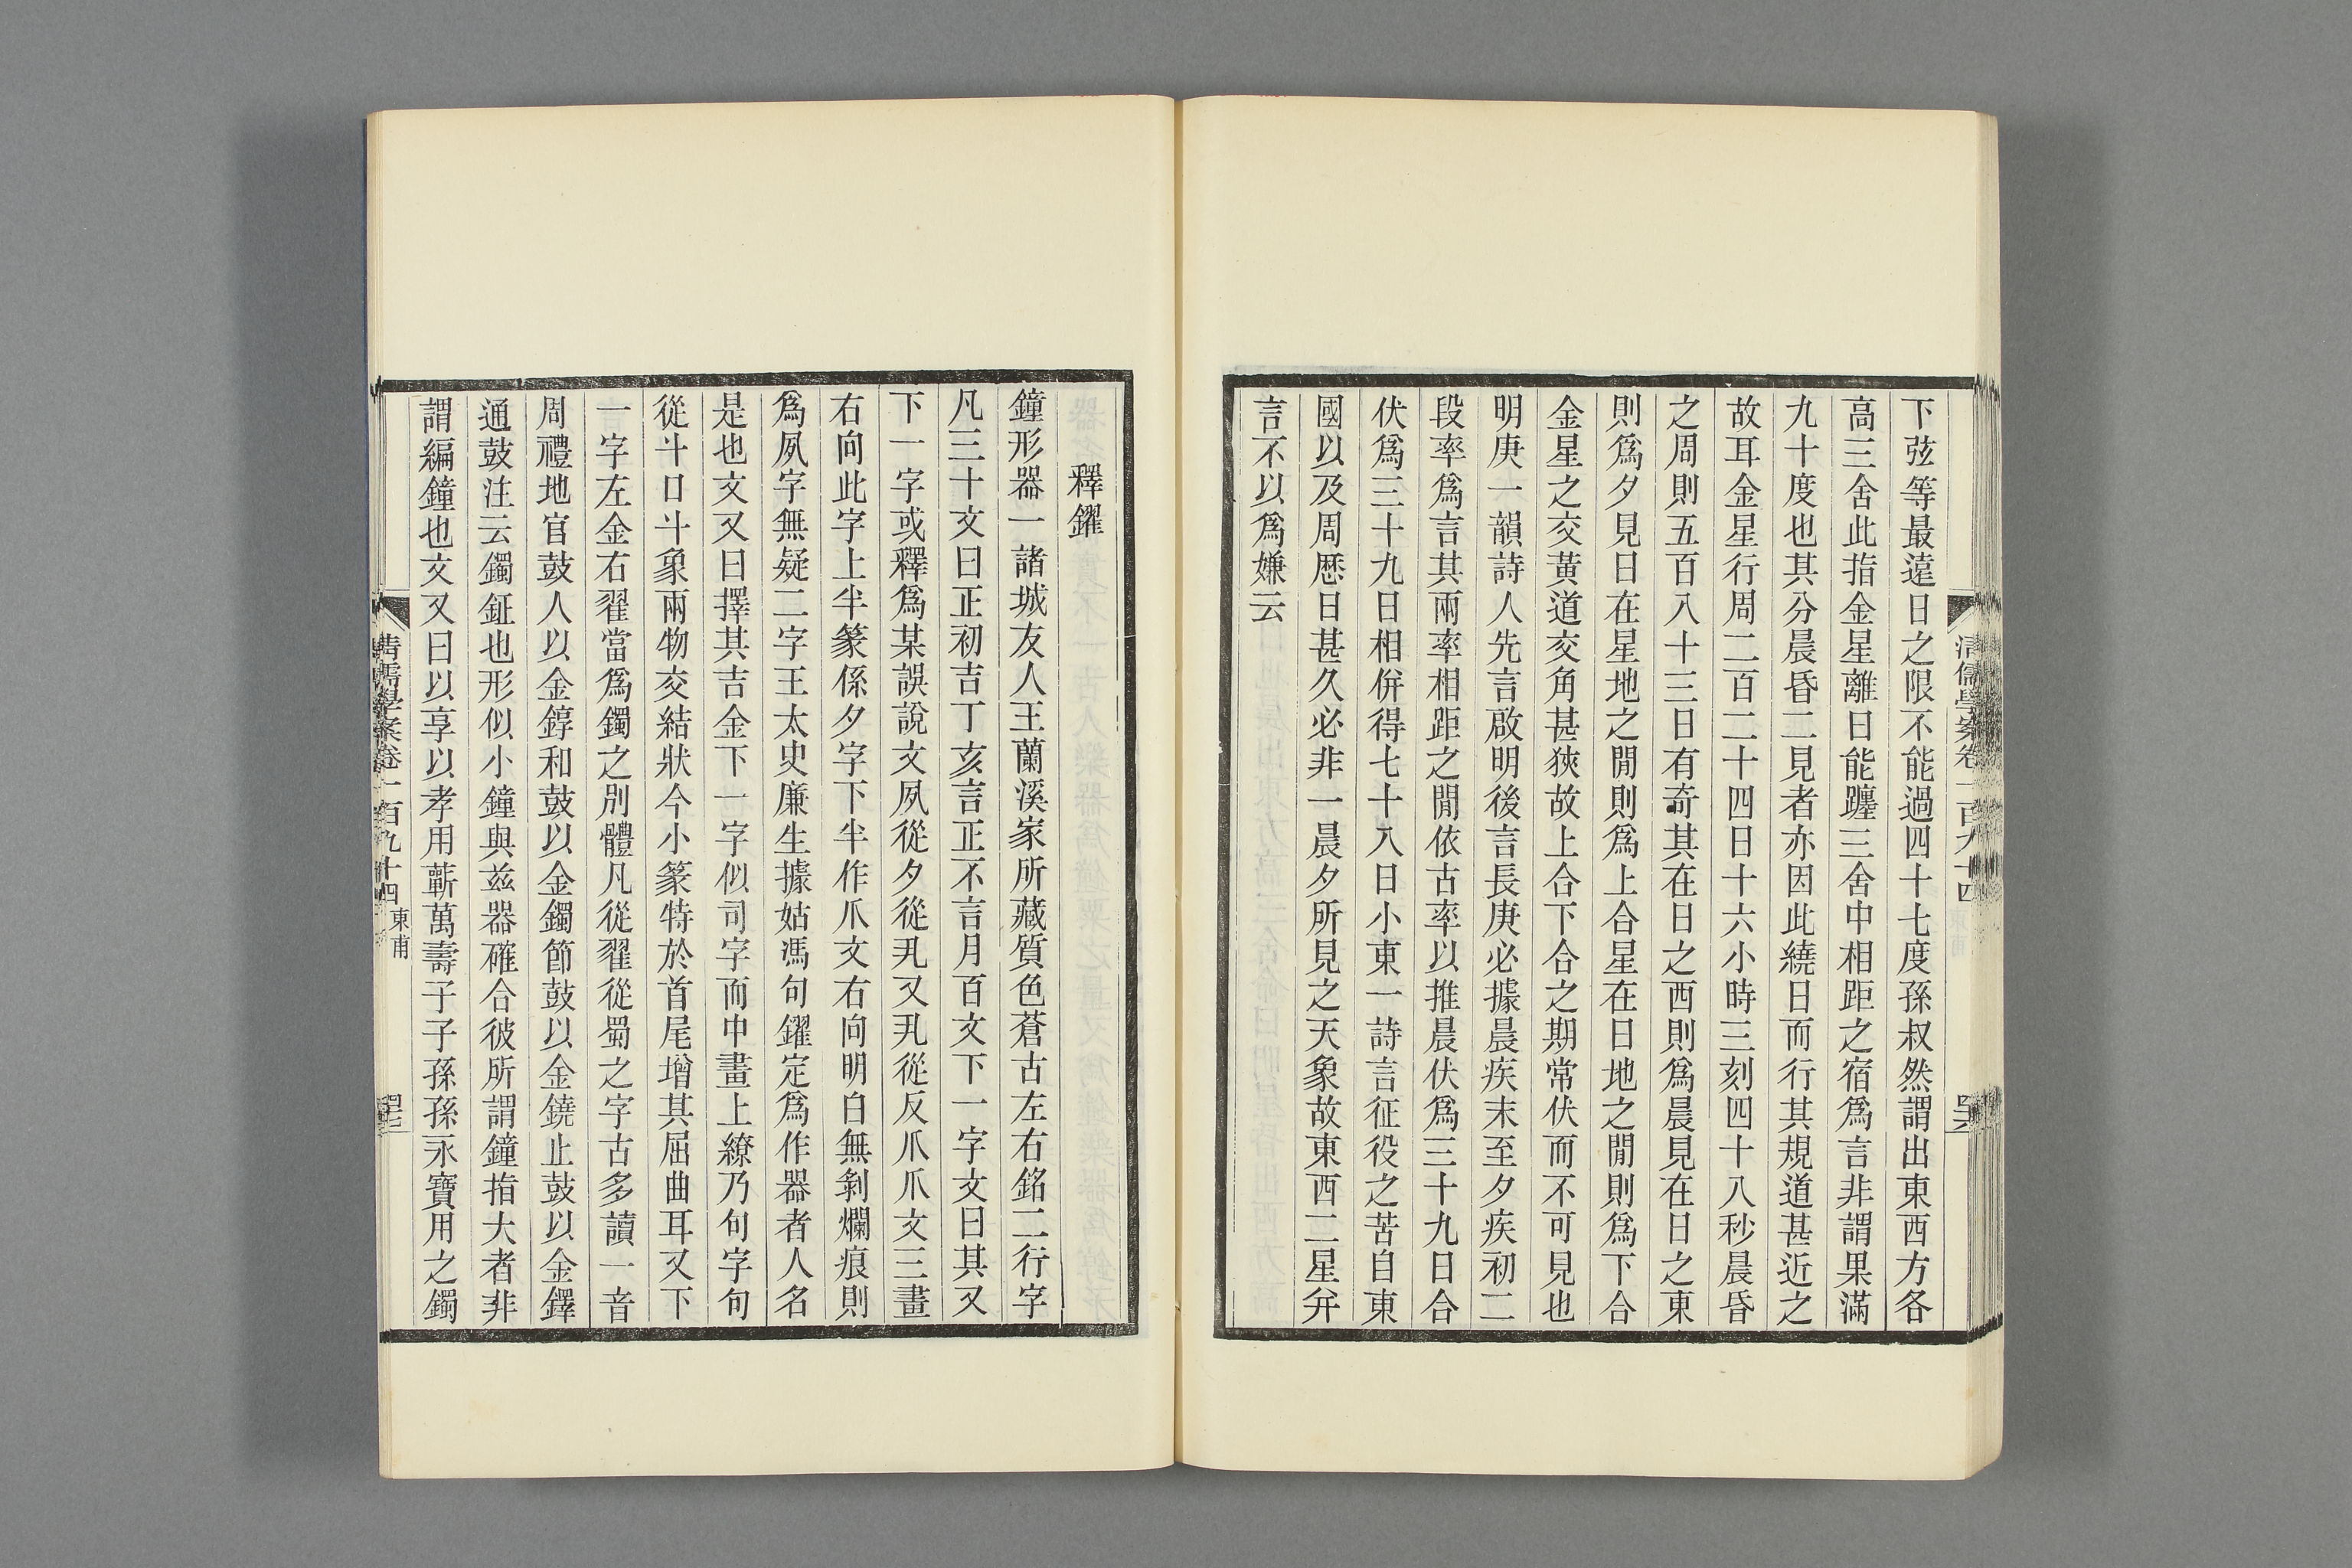 清儒學案卷一百九十四
下弦等最遠日之限不能過四十七度孫叔然謂出東西方各
高三舍此指金星離日能躔三舍中相距之宿爲言非謂果滿
九十度也其分晨昏二見者亦因此繞日而行其規道甚近之
故耳金星行周二百二十四日十六小時三刻四十八秒晨昏
之周則五百八十三日有奇其在日之西則爲晨見在日之東
則爲夕見日在星地之閒則爲上合星在日地之閒則爲下合
金星之交黃道交角甚狹故上合下合之期常伏而不可見也
明庚一韻詩人先言啟明後言長庚必據晨晨疾末至夕疾初二
段率爲言其兩率相距之閒依古率以推晨伏爲三十九日合
伏爲三十九日相併得七十八日小東一詩言征役之苦自東
國以及周歷日甚久必非一晨夕所見之天象故東西二星并
言不以爲嫌云
釋鑃
鐘形器一諸城友人王蘭溪家所藏質色蒼古左右銘二行字
凡三十文曰正初吉丁亥言正不言月百文下一字文曰其又
下一字或釋爲某誤說文夙從夕從丮又丮從反爪爪文三畫
右向此字上半篆係夕字下半作爪文右向明白無剝爛痕則
爲夙字無疑二字王太史廉生據姑馮句鑃定爲作器者人名
是也文又曰擇其吉金下一字似司字而中畫上繚乃句字句
從斗口斗象兩物交結狀今小篆特於首尾增其屈曲耳又下
一字左金右翟當爲鐲之別體凡從翟從蜀之字古多讀一音
周禮地官鼓人以金錞和鼓以金鐲節鼓以金鐃止鼓以金鐸
通鼓注云鐲鉦也形似小鐘與茲器確合彼所謂鐘指大者非
謂編鐘也文又曰以享以孝用蘄萬壽子子孫孫永寶用之鐲
清儒學案卷一百九十四 東甫